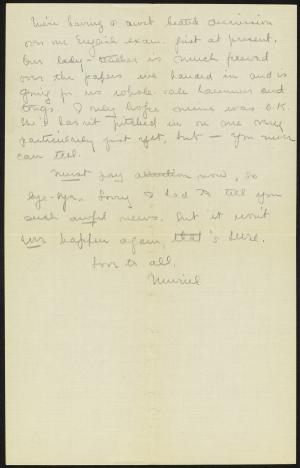 We're having a most heated discussion
over our English exam. just at present.
Our lady-teacher is much peeved
over the papers we handed in and is
going for us whole-sale hammer and
tongs. I only hope mine was O.K.
She hasn't pitched in on me very
particularly just yet, but — you never
can tell.
Must pay attention now, so
bye-bye. Sorry I had to tell you
such awful news. But it won't
ever happen again, that's sure.
Love to all,
Muriel